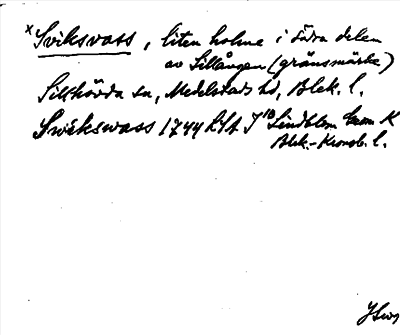 x Sviksvass, liten holme i södra delen
av Sillången (gränsmärke)
Sillhövda sn, Medelstads hd, Blek. l.
Swikswass 1744 LSA J10 Lindblom Grm K
Blek.-Kronob. l.